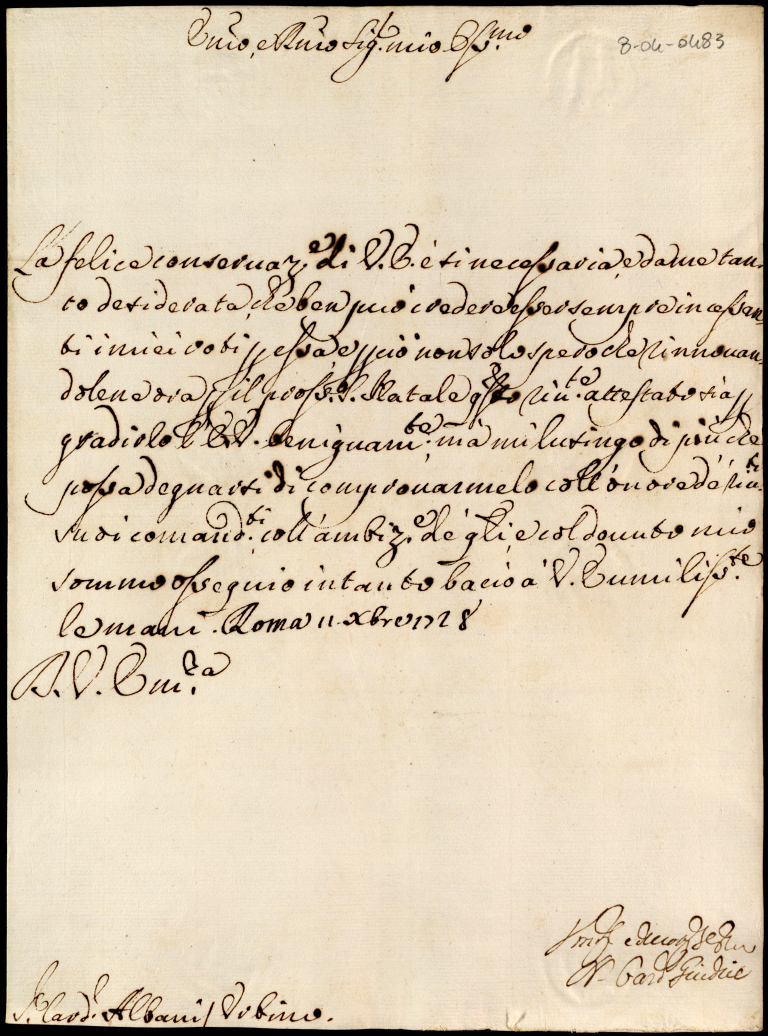 Em̃o, e Rm̃o Sig.r mio Oss.mo
8-04-0483
La felice conservaz.e di V. E. è sì necessaria, e da me tan-
to desiderata, che ben può credere esser sempre incessan-
ti i miei voti p essa, e p ciò non solo spero che rinnovan-
dolene ora p il pross.o S. Natale q̃sto riv.te attestato sia p
gradirlo l'E. V. benignam.te, mà mi lusingo di più che
possa degnarsi di comprovarmelo coll'onore de' riv.ti
suoi comand.ti coll'ambiz.e de' q̃li, e col dovuto mio
sommo ossequio intanto bacio à V. E. umiliss.te
le mani. Roma 11 Xbre 1728
D. V. Em.za
N. Card. Giudice
S. Card. Albani / Urbino.